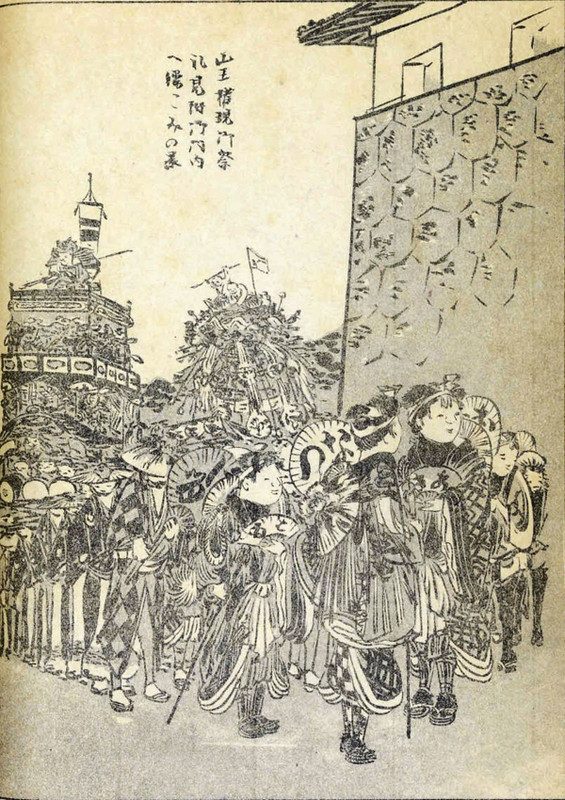 山王権現御祭
礼見附御門内
へ繰こみの景